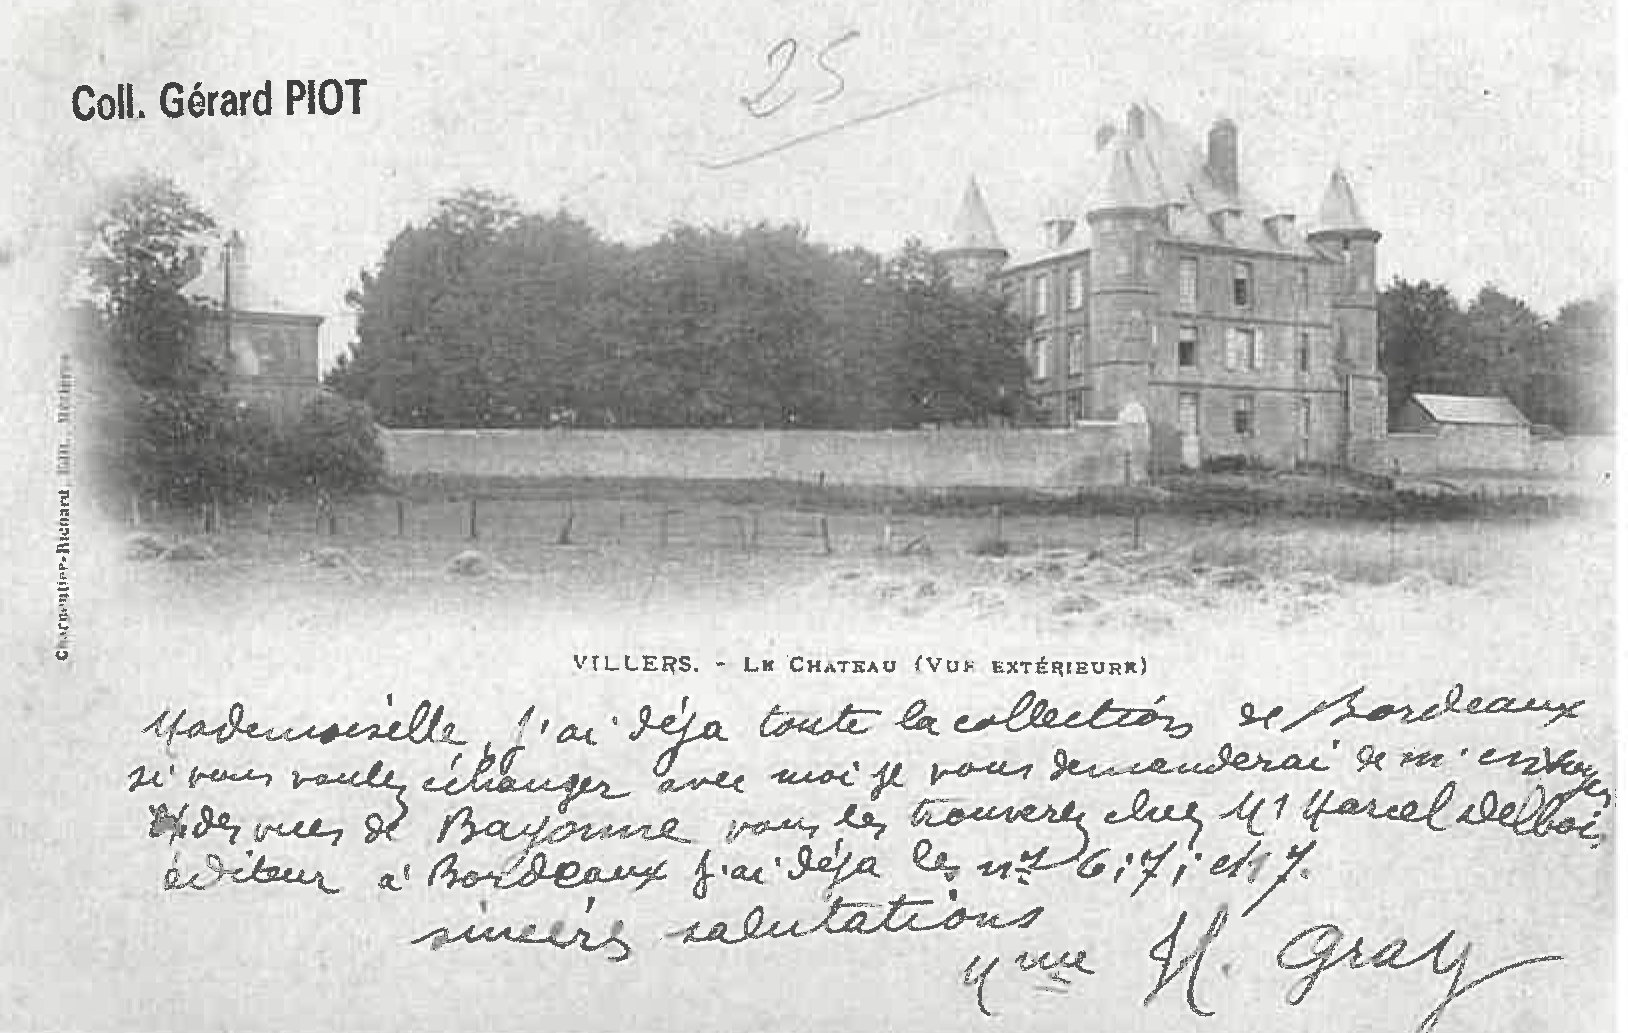 25
Coll. Gérard PIOT
Charpentier-Richard, Édit., Mézières
VILLERS. - LE CHATEAU (VUE EXTÉRIEURE)
Mademoiselle, j'ai déja toute la collection de Bordeaux
si vous voulez échanger avec moi je vous demanderai de m'envoyer
des vues de Bayonne vous les trouverez chez Mr Marcel Delboi
éditeur a Bordeaux j'ai déja les nos 6, 7, et 17.
sincères salutations
Mme H. Gray